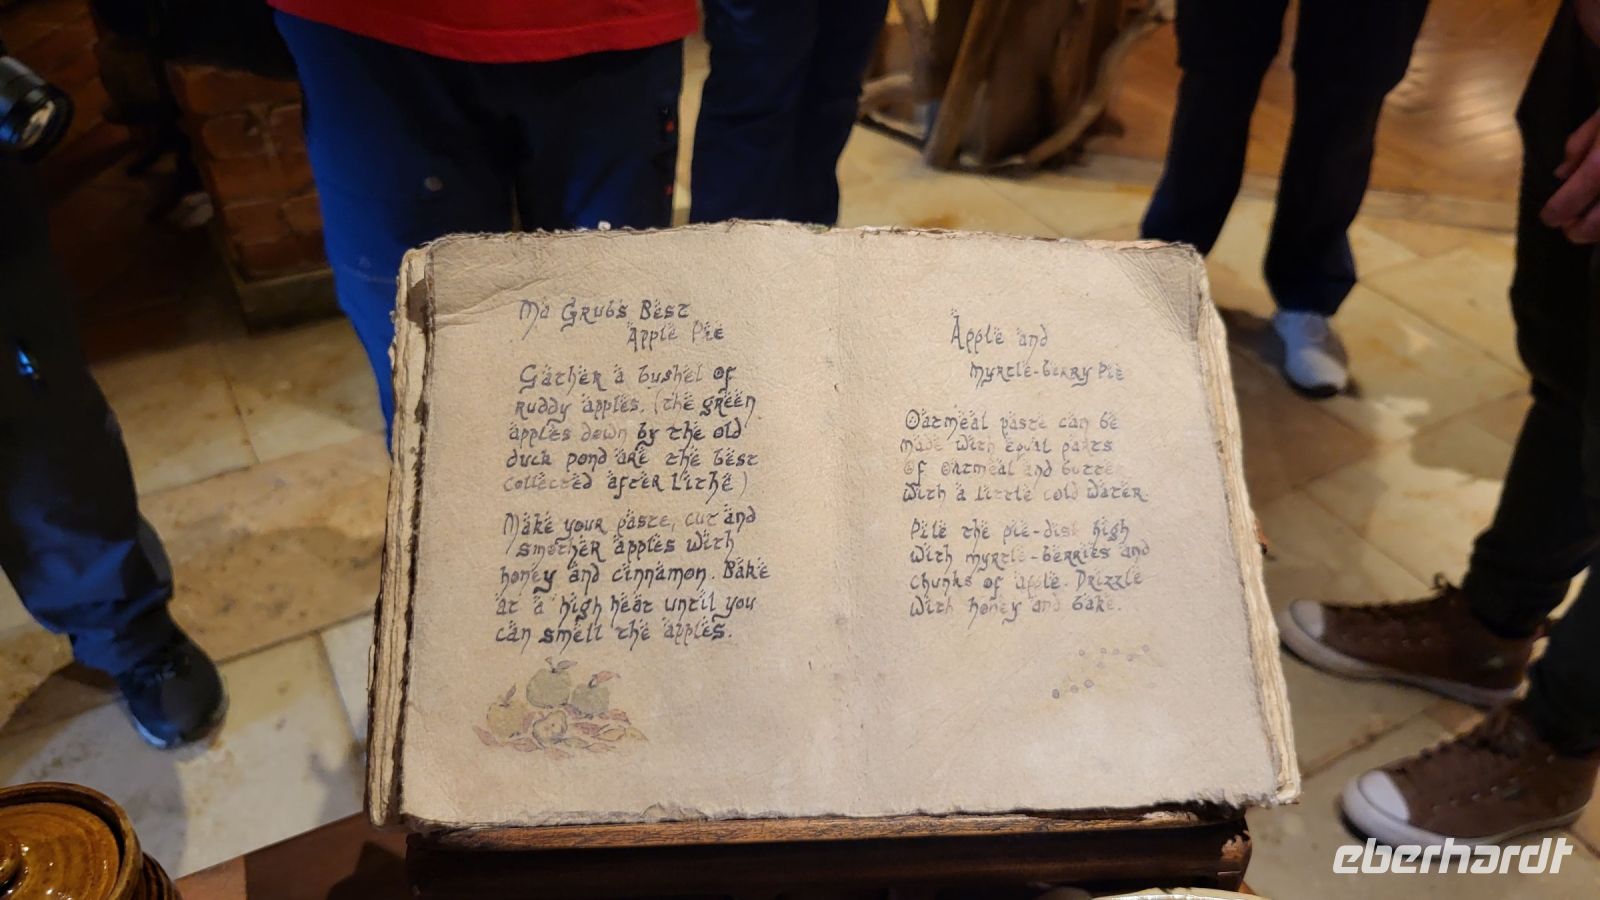 Ma Grubs Best
Apple Pie
Gather a bushel of
ruddy apples. (the green
apples down by the old
duck pond are the best
collected after Lithe)
Make your paste, cut and
smother apples with
honey and cinnamon. Bake
at a high heat until you
can smell the apples.
Apple and
Myrtle-berry Pie
Oatmeal paste can be
made with equal parts
of oatmeal and butter
with a little cold water.
Pile the pie-dish high
with myrtle-berries and
chunks of apple. Drizzle
with honey and bake.
eberhardt